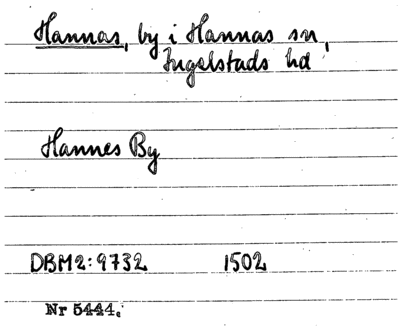 Hannas, by i Hannas sn,
Ingelstads hd
Hannes By
DBM2:9732 1502
Nr 5444.